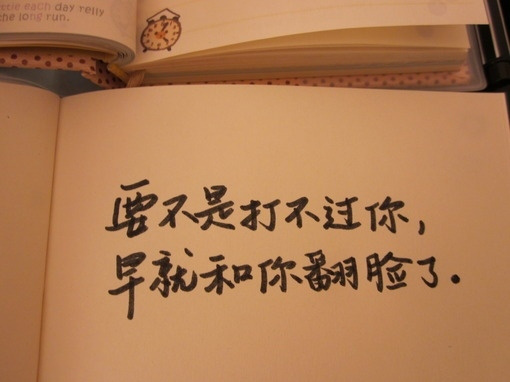 ttle each day relly
the long run.
要不是打不过你,
早就和你翻脸了.